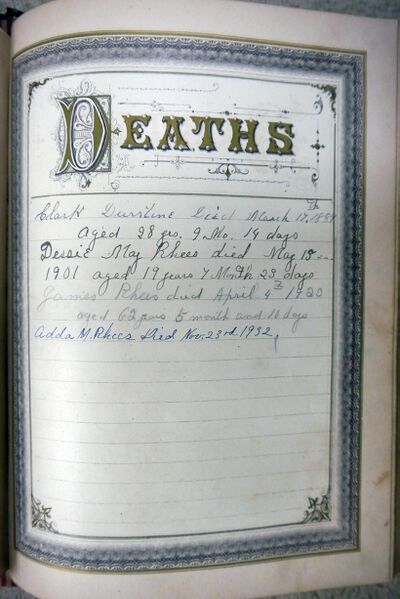 DEATHS
Clark Durstine Died March 17th
aged 28 yrs. 9 Mo. 14 days
Dessie May Rhees died May 15
1901 aged 19 years 7 Month 23 days
James Rhees died April 4th 1920
aged 62 years 5 month and 10 days
Adda M. Rhees Died Nov. 23rd 1932,